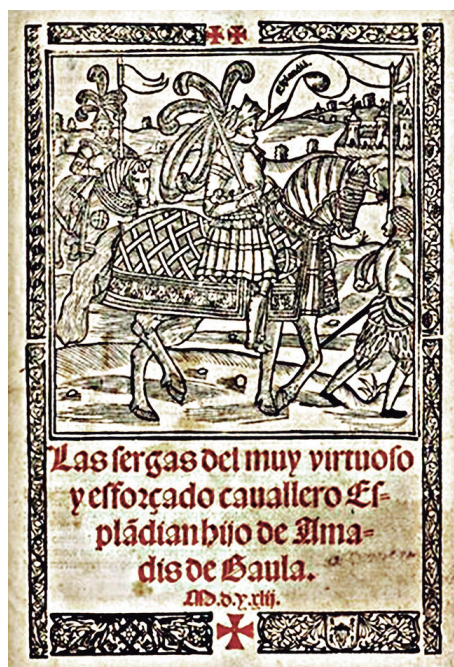 Las ſergas del muy virtuoſo
y eſforçado cauallero Eſ=
plãdian hijo de Ama=
dis de Gaula.